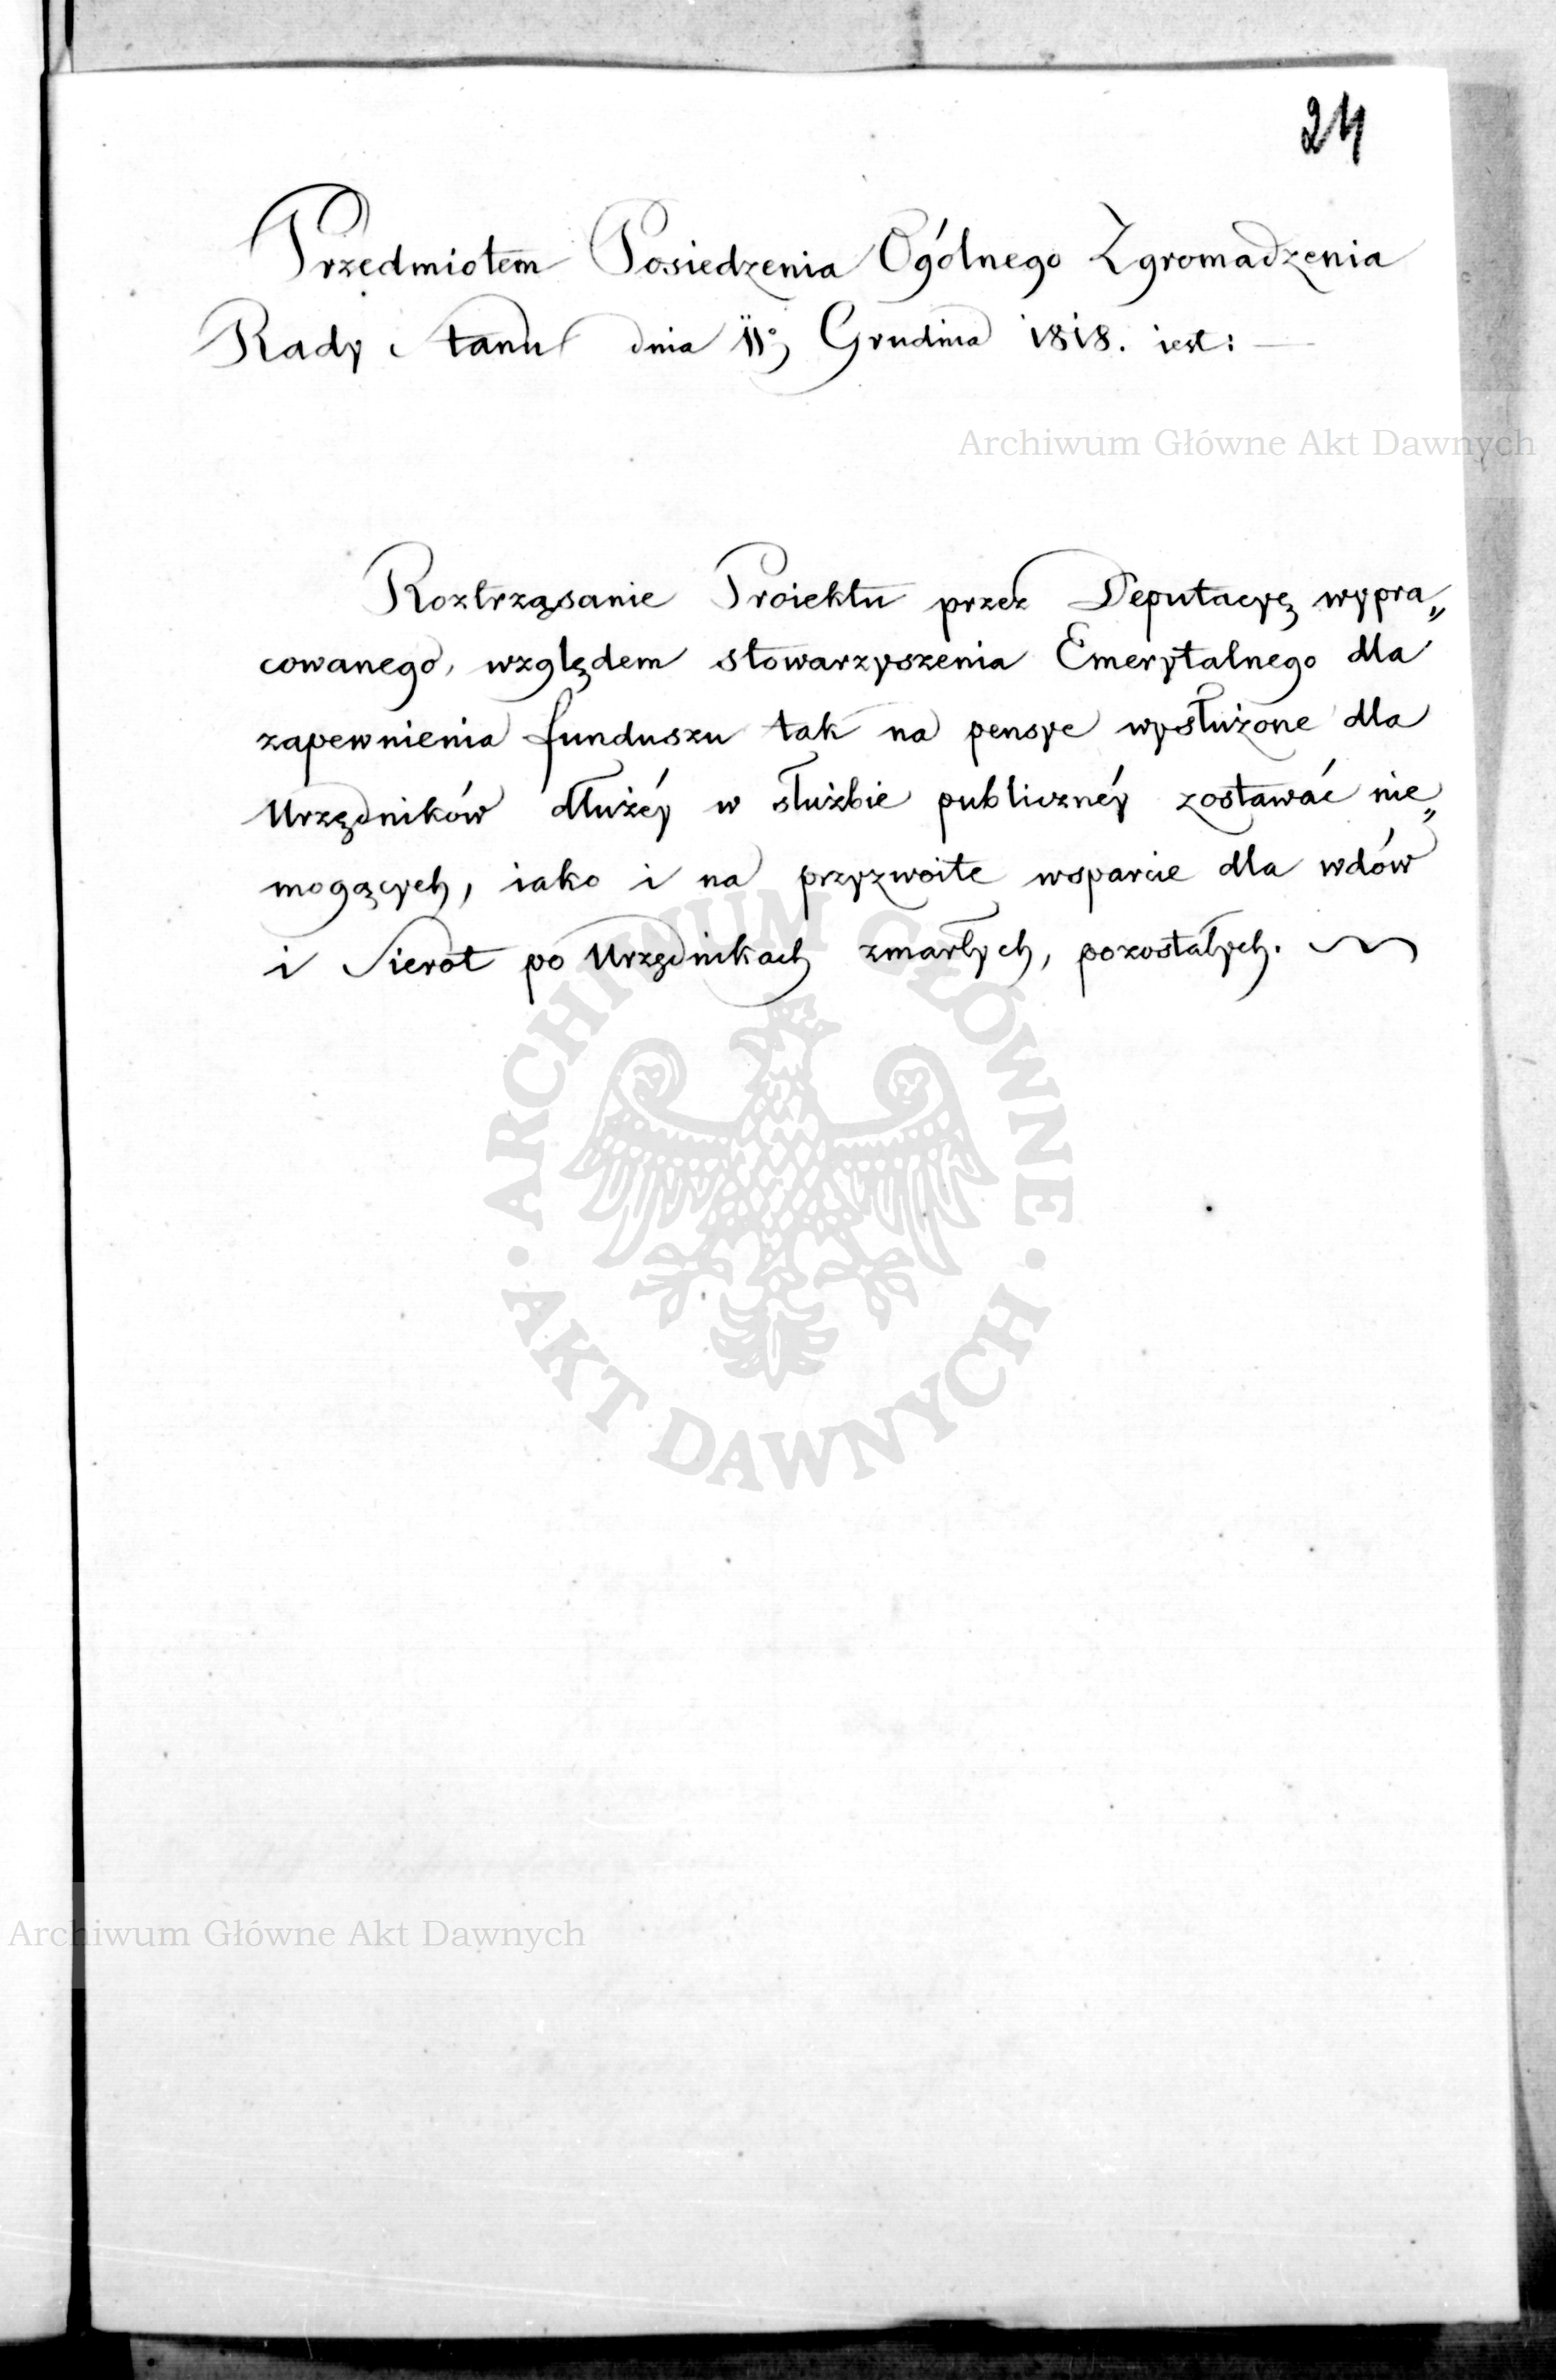 24
Przedmiotem Posiedzenia Ogólnego Zgromadzenia
Rady Stanu dnia 11º Grudnia 1818. iest: —
Archiwum Główne Akt Dawnych
Roztrząsanie Proiektu przez Deputacyę wypra„
cowanego, względem stowarzyszenia Emerytalnego dla
zapewnienia funduszu tak na pensye wysłużone dla
Urzędników dłużéy w służbie publicznéy zostawać nie„
mogących, iako i na przyzwoite wsparcie dla wdów
i Sierot po Urzędnikach zmarłych, pozostałych.
ARCHIWUM GŁÓWNE
AKT DAWNYCH
Archiwum Główne Akt Dawnych